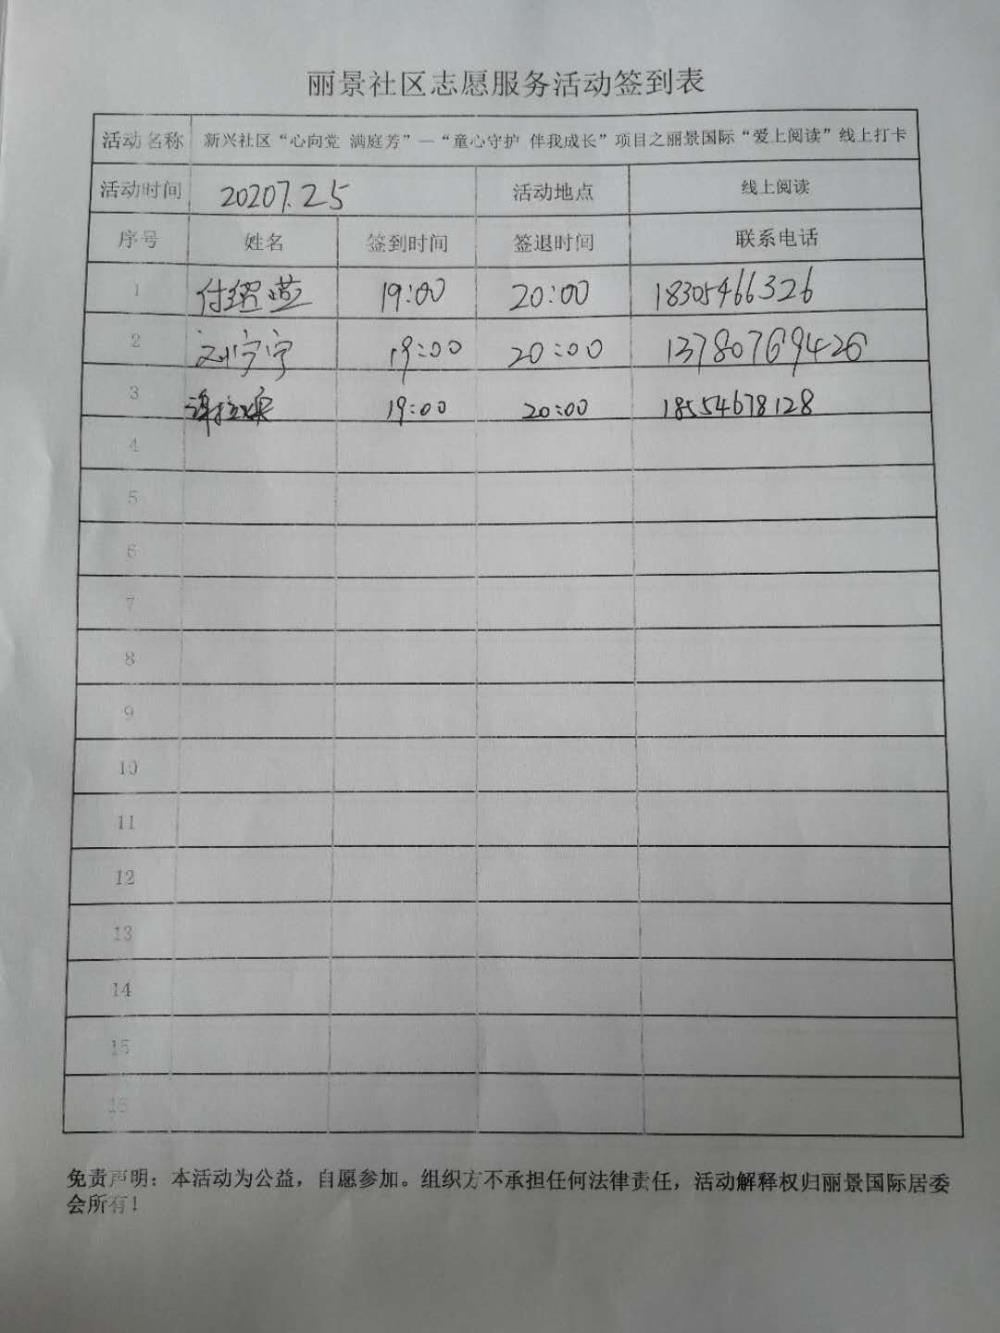 丽景社区志愿服务活动签到表
活动名称 新兴社区“心向党 满庭芳”—“童心守护 伴我成长”项目之丽景国际“爱上阅读”线上打卡
活动时间 20207.25 活动地点 线上阅读
序号 姓名 签到时间 签退时间 联系电话
1 付 19:00 20:00 18305466326
2 刘宁宁 19:00 20:00 13780769426
3 19:00 20:00 18554678128
4
5
6
7
8
9
10
11
12
13
14
15
16
免责声明：本活动为公益，自愿参加。组织方不承担任何法律责任，活动解释权归丽景国际居委
会所有！